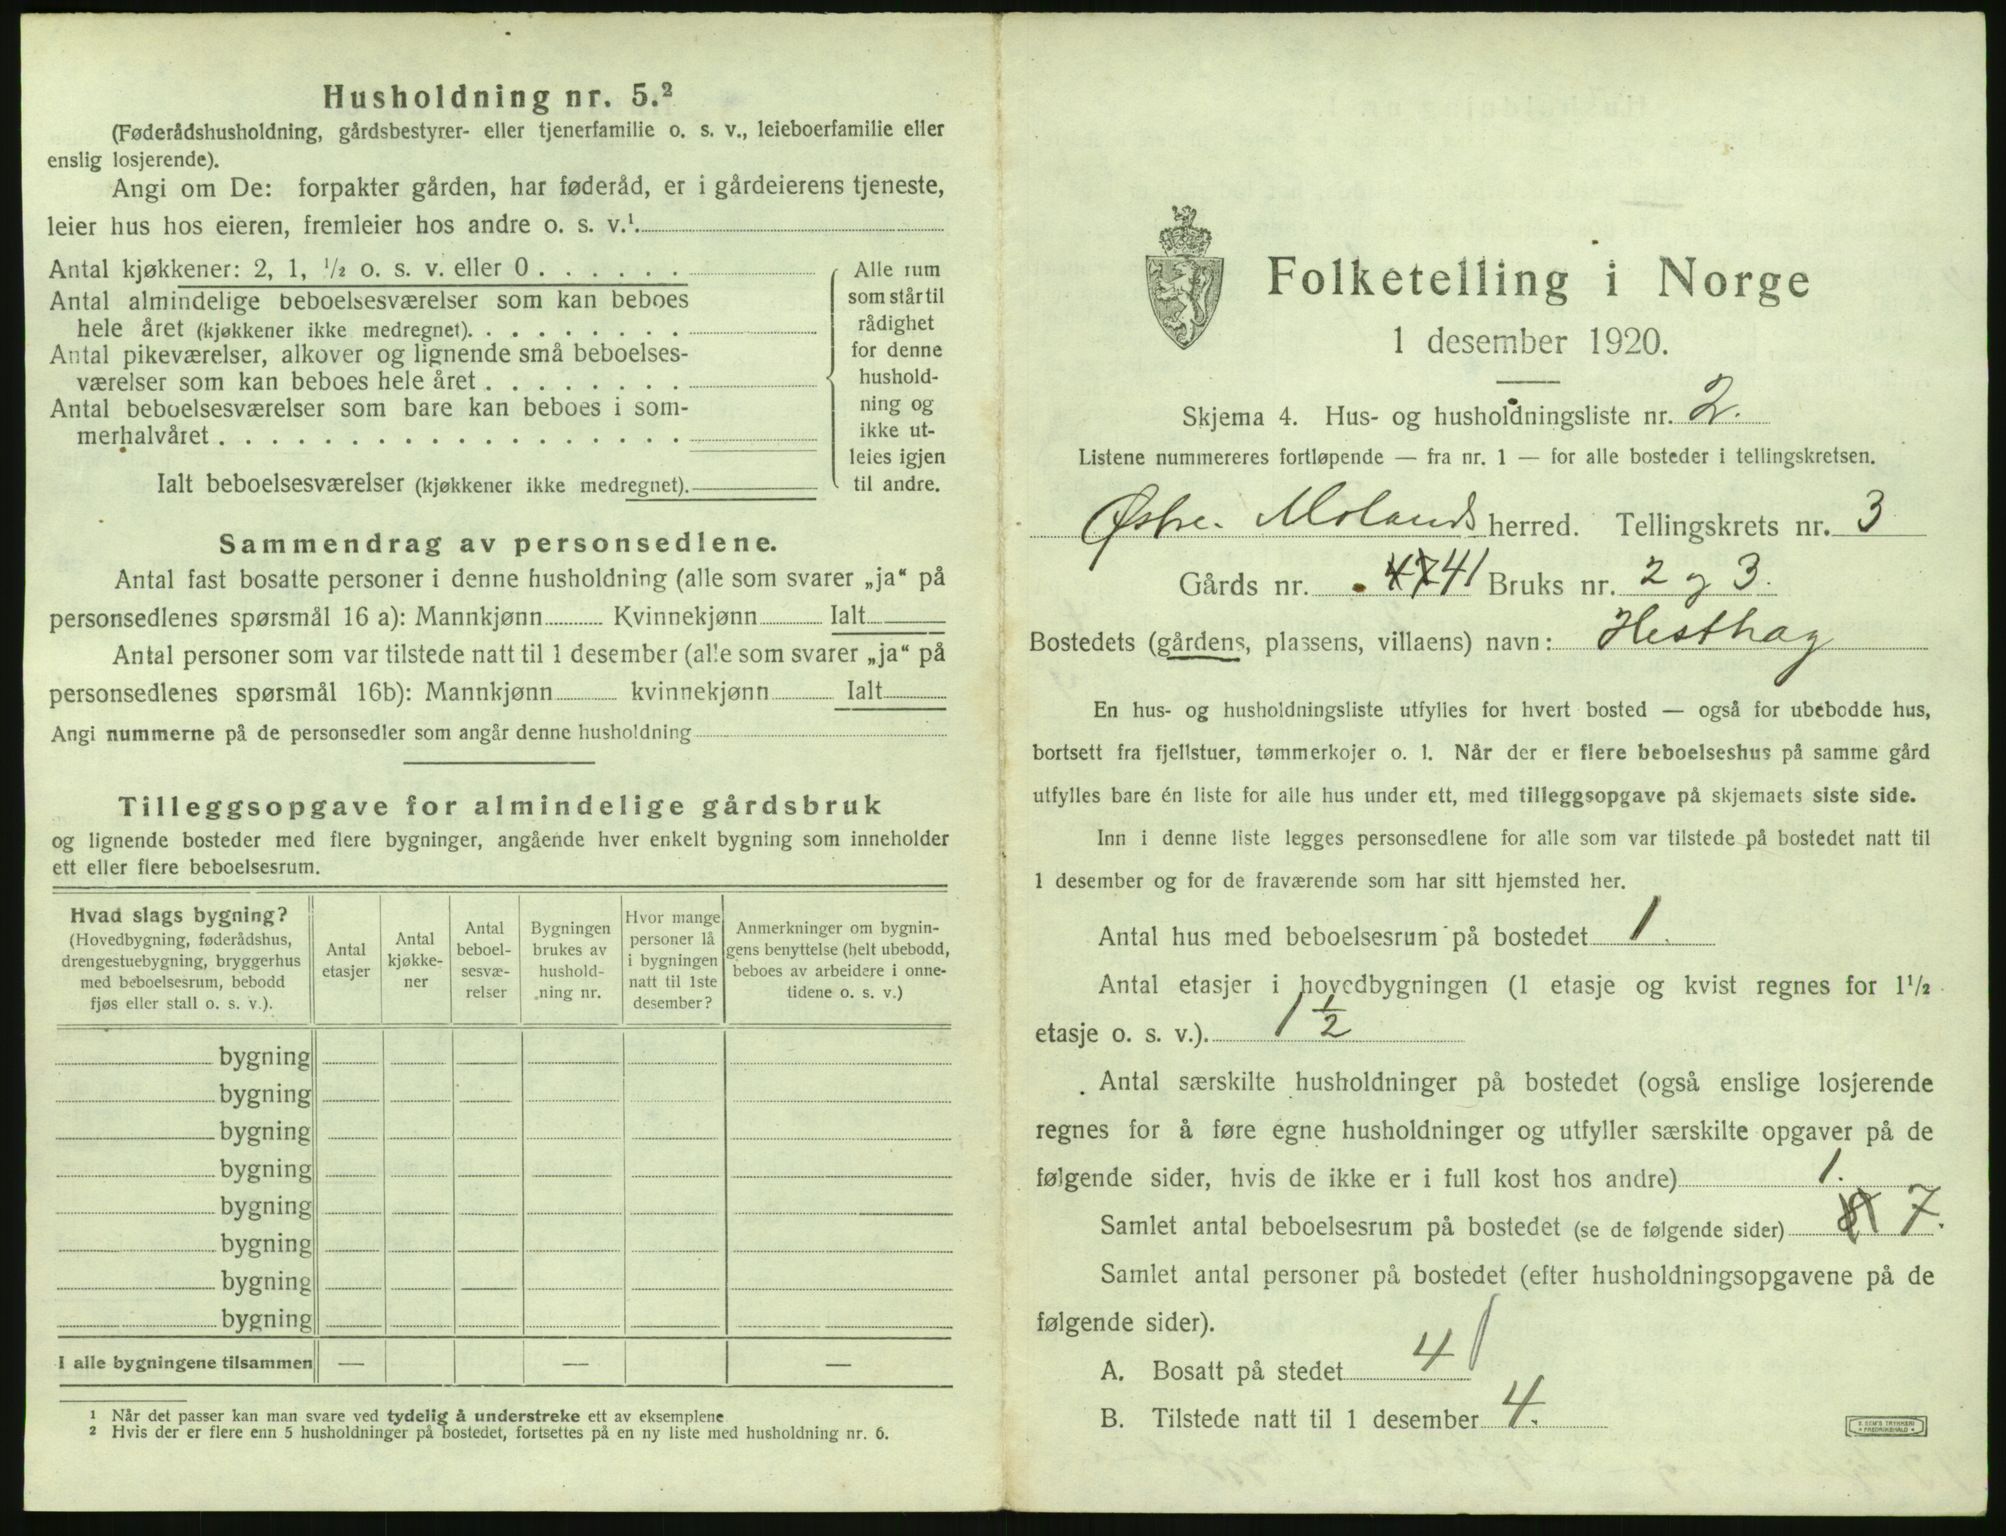 Husholdning nr. 5.²
(Føderådshusholdning, gårdsbestyrer- eller tjenerfamilie o. s. v., leieboerfamilie eller
enslig losjerende).
Angi om De: forpakter gården, har føderåd, er i gårdeierens tjeneste,
leier hus hos eieren, fremleier hos andre o. s. v.¹.
Antal kjøkkener: 2, 1, ½ o. s. v. eller 0 . . . . . .
Antal almindelige beboelsesværelser som kan beboes
hele året (kjøkkener ikke medregnet). . . . . . . . .
Antal pikeværelser, alkover og lignende små beboelses-
værelser som kan beboes hele året . . . . . . . .
Antal beboelsesværelser som bare kan beboes i som-
merhalvåret . . . . . . . . . . . . . . . . . .
Ialt beboelsesværelser (kjøkkener ikke medregnet).
Alle rum
som står til
rådighet
for denne
hushold-
ning og
ikke ut-
leies igjen
til andre.
Sammendrag av personsedlene.
Antal fast bosatte personer i denne husholdning (alle som svarer „ja“ på
personsedlenes spørsmål 16 a): Mannkjønn Kvinnekjønn Ialt
Antal personer som var tilstede natt til 1 desember (alle som svarer „ja“ på
personsedlenes spørsmål 16b): Mannkjønn kvinnekjønn Ialt
Angi nummerne på de personsedler som angår denne husholdning
Tilleggsopgave for almindelige gårdsbruk
og lignende bosteder med flere bygninger, angående hver enkelt bygning som inneholder
ett eller flere beboelsesrum.
Hvad slags bygning?
(Hovedbygning, føderådshus,
drengestuebygning, bryggerhus
med beboelsesrum, bebodd
fjøs eller stall o. s. v.).
Antal
etasjer
Antal
kjøkke-
ner
Antal
beboel-
sesvæ-
relser
Bygningen
brukes av
hushold-
ning nr.
Hvor mange
personer lå
i bygningen
natt til 1ste
desember?
Anmerkninger om bygnin-
gens benyttelse (helt ubebodd,
beboes av arbeidere i onne-
tidene o. s. v.)
bygning
bygning
bygning
bygning
bygning
bygning
bygning
bygning
I alle bygningene tilsammen — — —
¹ Når det passer kan man svare ved tydelig å understreke ett av eksemplene
² Hvis der er flere enn 5 husholdninger på bostedet, fortsettes på en ny liste med husholdning nr. 6.
Folketelling i Norge
1 desember 1920.
Skjema 4. Hus- og husholdningsliste nr. 2.
Listene nummereres fortløpende — fra nr. 1 — for alle bosteder i tellingskretsen.
Østre Molands herred. Tellingskrets nr. 3
Gårds nr. 47 41 Bruks nr. 2 og 3.
Bostedets (gårdens, plassens, villaens) navn: Hesthag
En hus- og husholdningsliste utfylles for hvert bosted — også for ubebodde hus,
bortsett fra fjellstuer, tømmerkojer o. l. Når der er flere beboelseshus på samme gård
utfylles bare én liste for alle hus under ett, med tilleggsopgave på skjemaets siste side.
Inn i denne liste legges personsedlene for alle som var tilstede på bostedet natt til
1 desember og for de fraværende som har sitt hjemsted her.
Antal hus med beboelsesrum på bostedet 1.
Antal etasjer i hovedbygningen (1 etasje og kvist regnes for 1½
etasje o. s. v.). 1 ½
Antal særskilte husholdninger på bostedet (også enslige losjerende
regnes for å føre egne husholdninger og utfyller særskilte opgaver på de
følgende sider, hvis de ikke er i full kost hos andre) 1.
Samlet antal beboelsesrum på bostedet (se de følgende sider) 8 7.
Samlet antal personer på bostedet (efter husholdningsopgavene på de
følgende sider).
A. Bosatt på stedet 4
B. Tilstede natt til 1 desember 4.
E. SEM'S TRYKKERI
FREDRIKSHALD